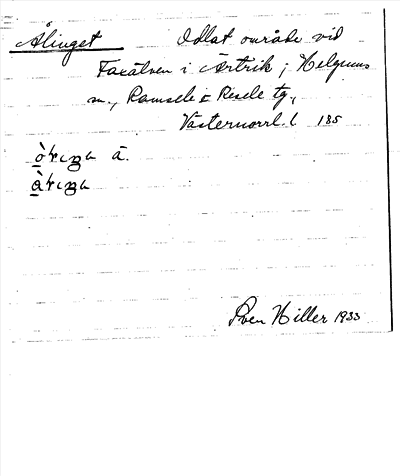 Ålinget Odlat område vid
Faxälven i Ärtrik, Helgums
sn., Ramsele o Resele tg.,
Västernorrl. l 185
ā.
Sven Hiller 1933